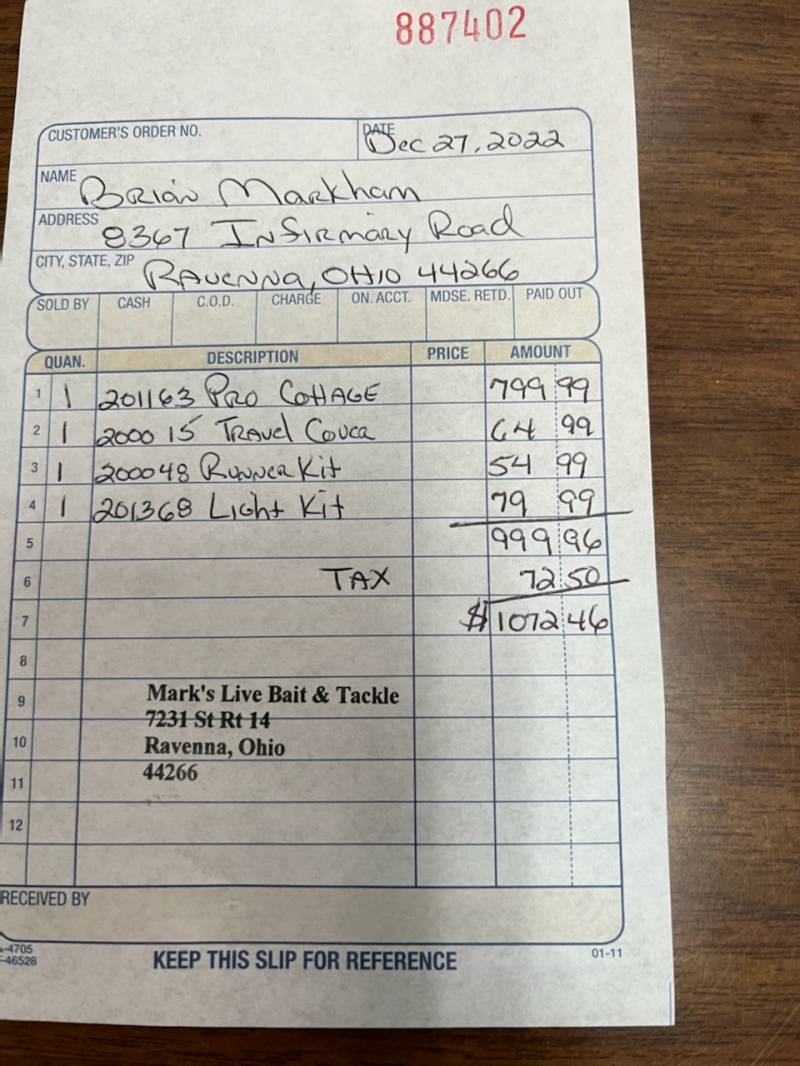 887402
CUSTOMER'S ORDER NO. DATE Dec 27, 2022
NAME Brian Markham
ADDRESS 8367 Infirmary Road
CITY, STATE, ZIP Ravenna, OHIO 44266
SOLD BY CASH C.O.D. CHARGE ON. ACCT. MDSE. RETD. PAID OUT
QUAN. DESCRIPTION PRICE AMOUNT
1 1 201163 PRO COTTAGE 799 99
2 1 2000 15 Travel Cover 64 99
3 1 200048 Runner Kit 54 99
4 1 201368 Light Kit 79 99
5 999 96
6 TAX 72 50
7 $1072 46
8
9 Mark's Live Bait & Tackle
7231 St Rt 14
10 Ravenna, Ohio
11 44266
12
RECEIVED BY
-4705
-46528
KEEP THIS SLIP FOR REFERENCE 01-11